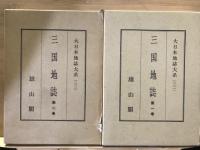 大日本地誌大系
三国地誌 第一巻
雄山閣
大日本地誌大系
三国地誌
雄山閣